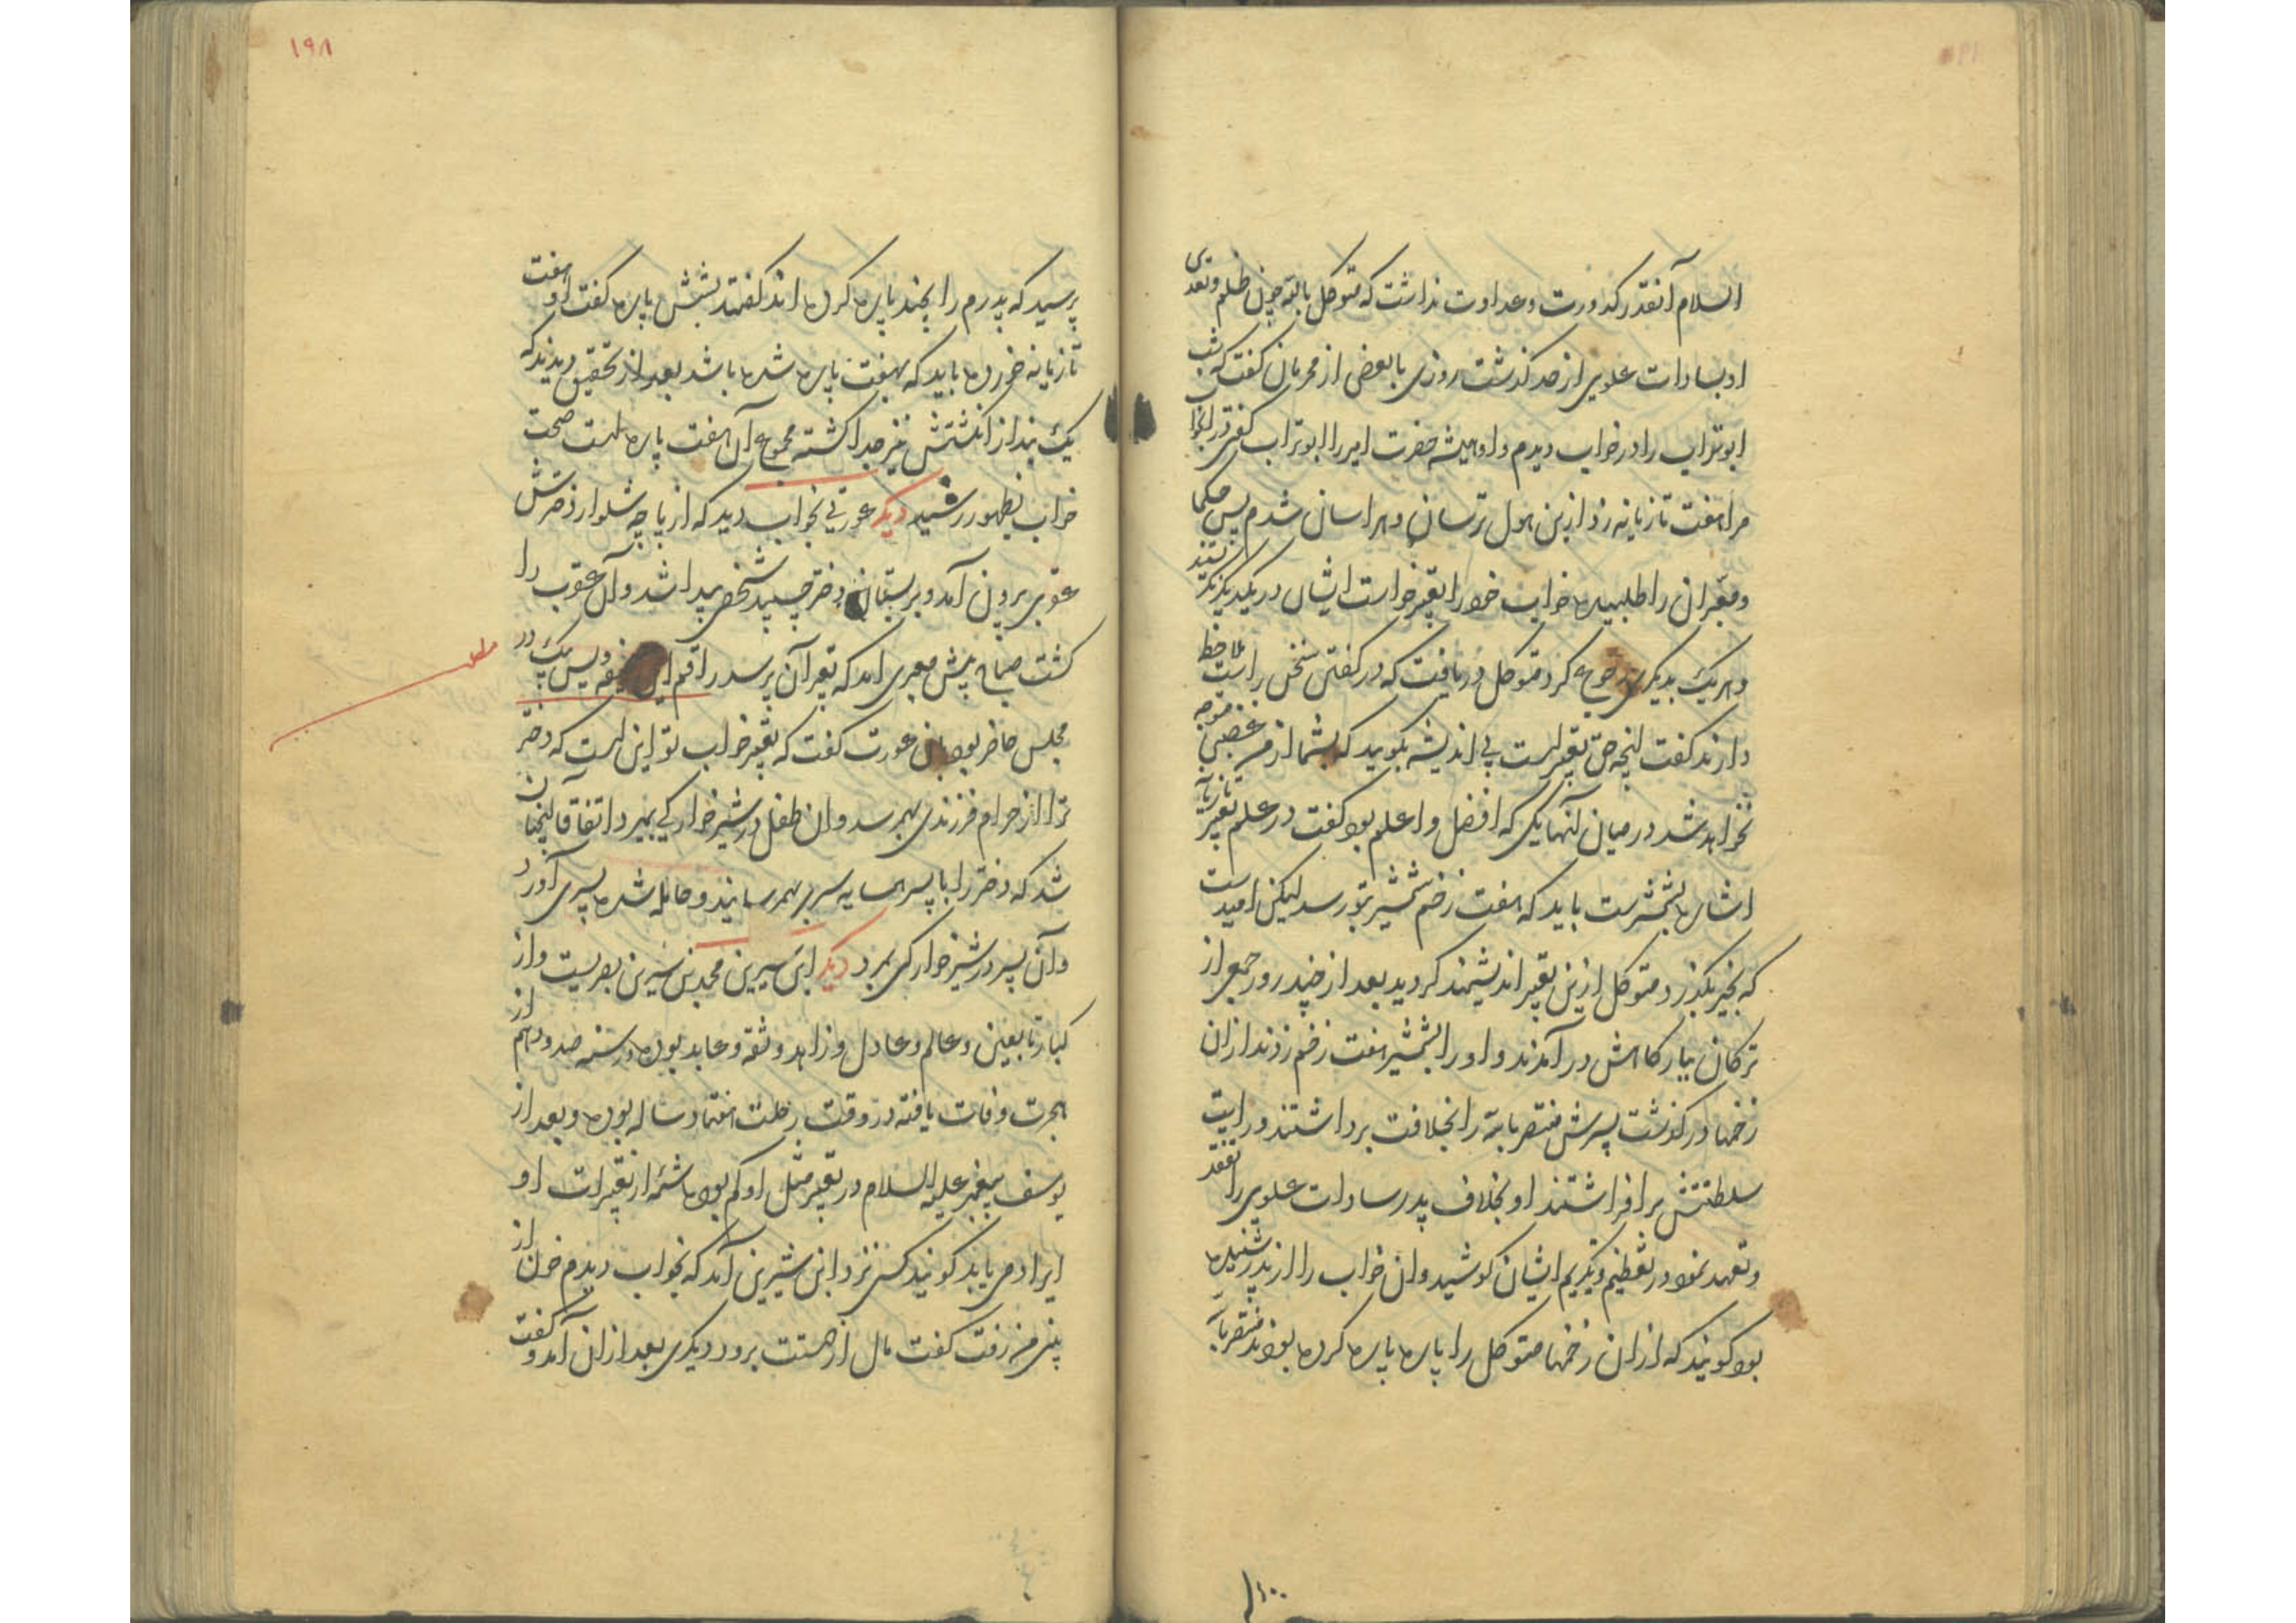 السلام آنقدر کدورت و عداوت نداشت که متوکل بالله چون ظلم و تعدی
او بسادات علوی از حد کذشت روزی با بعضی از محرمان کفت که شب
ابوتراب را در خواب دیدم و او همیشه حضرت امیر را ابوتراب کفتی در آنخواب
مرا هفت تازیانه زد ازین هول ترسان و هراسان شدم پس حکما
و معبران را طلبیده خواب خود را تعبیر خواست ایشان در یکدیکر نکریستند
و هریک بدیکری رجوع کرد متوکل دریافت که در کفتن سخن راست ملاحظه
دارند کفت آنچه حق تعبیر است بی اندیشه بکویید که بشما از من غضبی متوجه
نخواهد شد در میان آنها یکی که افضل و اعلم بود کفت در علم تعبیر تازیانه
اشاره بشمشیرست باید که هفت زخم شمشیر بتو رسد لیکن امیدست
که بخیر بکذرد متوکل ازین تعبیر اندیشمند کردید بعد از چند روز جمعی از
ترکان ببارکاهش در آمدند و او را بشمشیر هفت زخم زدند از ان
زخمها در کذشت پسرش منتصر بالله را بخلافت برداشتند و رایت
سلطنتش بر افراشتند او بخلاف پدر سادات علوی را تفقد
و تعهد نمود در تعظیم و تکریم ایشان کوشید و ان خواب را از پدر شنیده
بود کویند که از ان زخمها متوکل را پاره پاره کرده بودند منتصر بالله
۱۹۸
پرسید که پدرم را بچند پاره کرده اند کفتند بشش پاره کفت او هفت
تازیانه خورده باید که بهفت پاره شده باشد بعد از تحقیق دیدند که
یک بند از انکشتش نیز جدا کشته مجموع آن هفت پاره است صحت
خواب بظهور رسید دیکر عورتی بخواب دید که از پاچه شلوار دخترش
عقربی برون آمد و بر پستان دختر چسپید شخصی پیدا شد و آن عقرب را
کشت صباح پیش معبری آمد که تعبیر آن پرسد راقم این در
مجلس حاضر بود بان عورت کفت که تعبیر خواب تو این است که دختر
ترا از حرام فرزندی بهم رسد و ان طفل در شیرخوارکی بمیرد اتفاقا آنچنان
شد که دختر را با پسر همسایه سری بهم رسانید و حامله شده پسری آورد
و آن پسر در شیر خوارکی بمرد دیکر ابن سیرین محمد بن سیرین بصریست و از
کبار تابعین و عالم و عادل و زاهد و ثقه و عابد بوده در سنه صد و دهم از
هجرت وفات یافته در وقت رحلت هفتاد ساله بوده و بعد از
یوسف پیغمبر علیه السلام در تعبیر مثل او کم بوده شمه از تعبیرات او
ایراد می یابد کویند کسی نزد ابن سیرین آمد که بخواب دیدم خون از
بینی من رفت کفت مال از دستت برود دیکری بعد از ان آمد و کفت